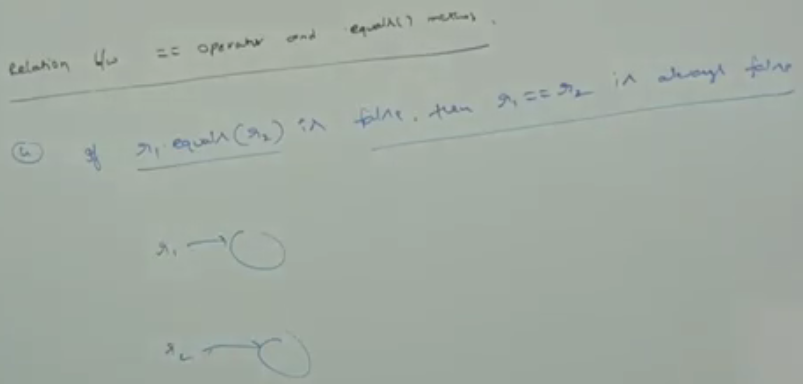 Relation b/w == operator and equals() method.
④ If r₁.equals(r₂) is false, then r₁==r₂ is always false
r₁
r₂